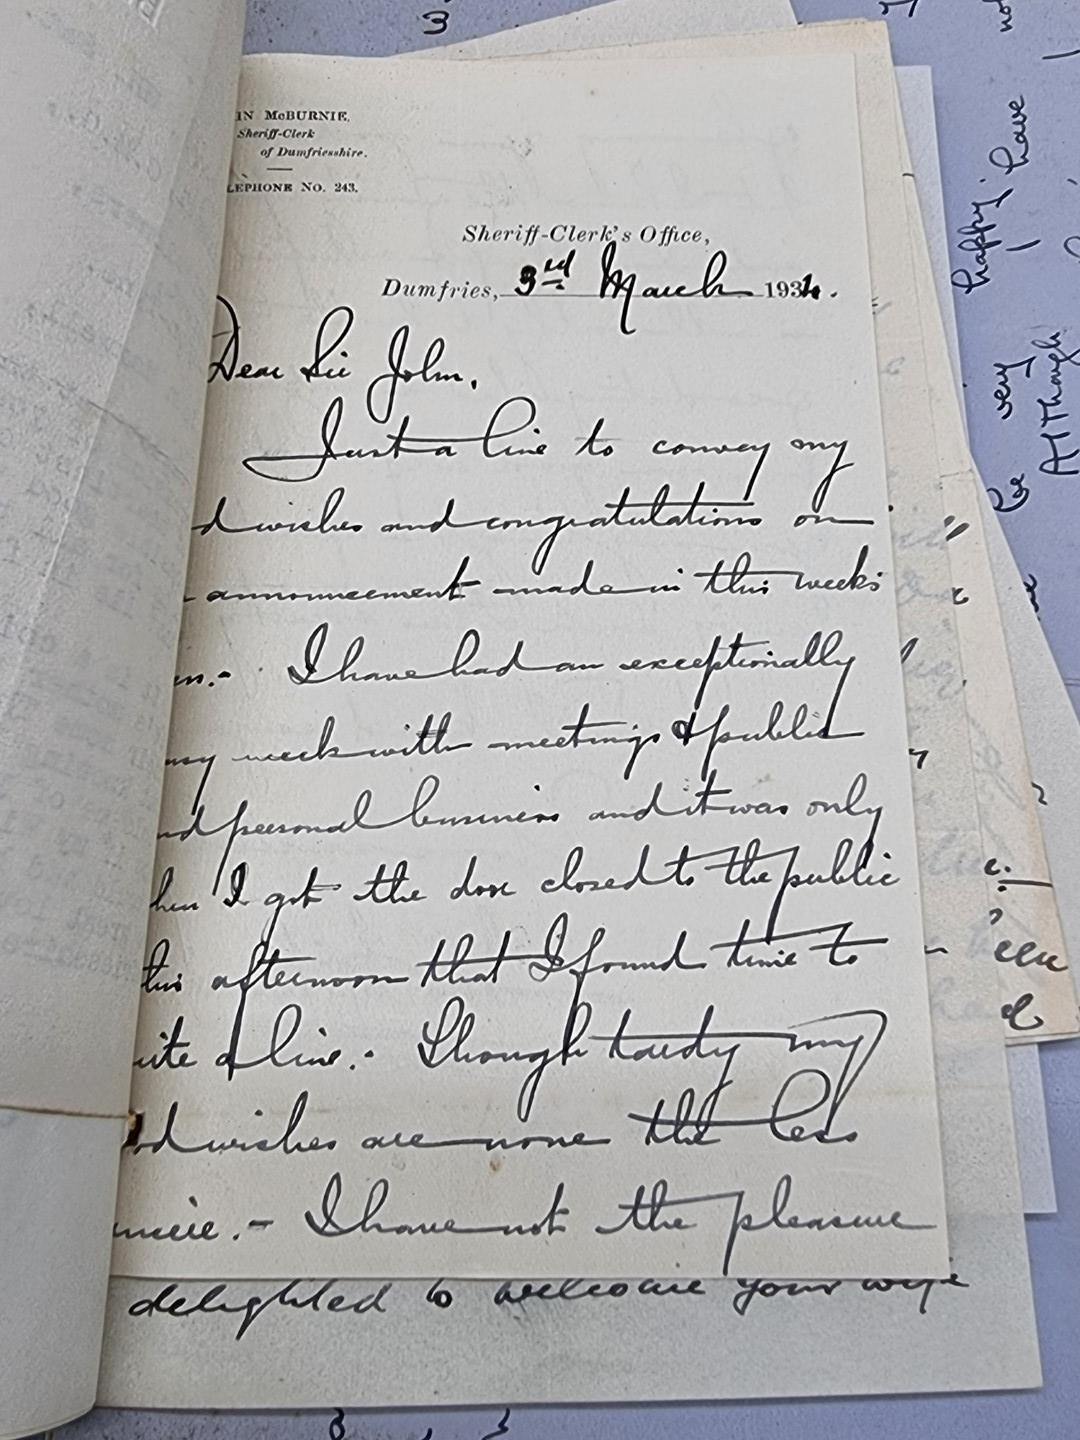 IN McBURNIE,
Sheriff-Clerk
of Dumfriesshire.
LEPHONE No. 243.
Sheriff-Clerk's Office,
Dumfries, 3rd March 1934.
Dear Sir John,
Just a line to convey my
d wishes and congratulations on
announcement made in this week's
I have had an exceptionally
week with meetings & public
nd personal business and it was only
hen I got the door closed to the public
this afternoon that I found time to
rite a line. Though tardy my
od wishes are none the less
I have not the pleasure
delighted to welcome your wife
happy have
be very
Although